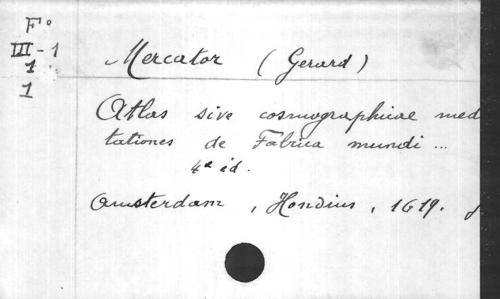 F°
III-1
1
1
Mercator (Gerard)
Atlas sive cosmographicae med
tationes de Fabrica mundi ...
4a éd.
Amsterdam, Hondius, 1619.